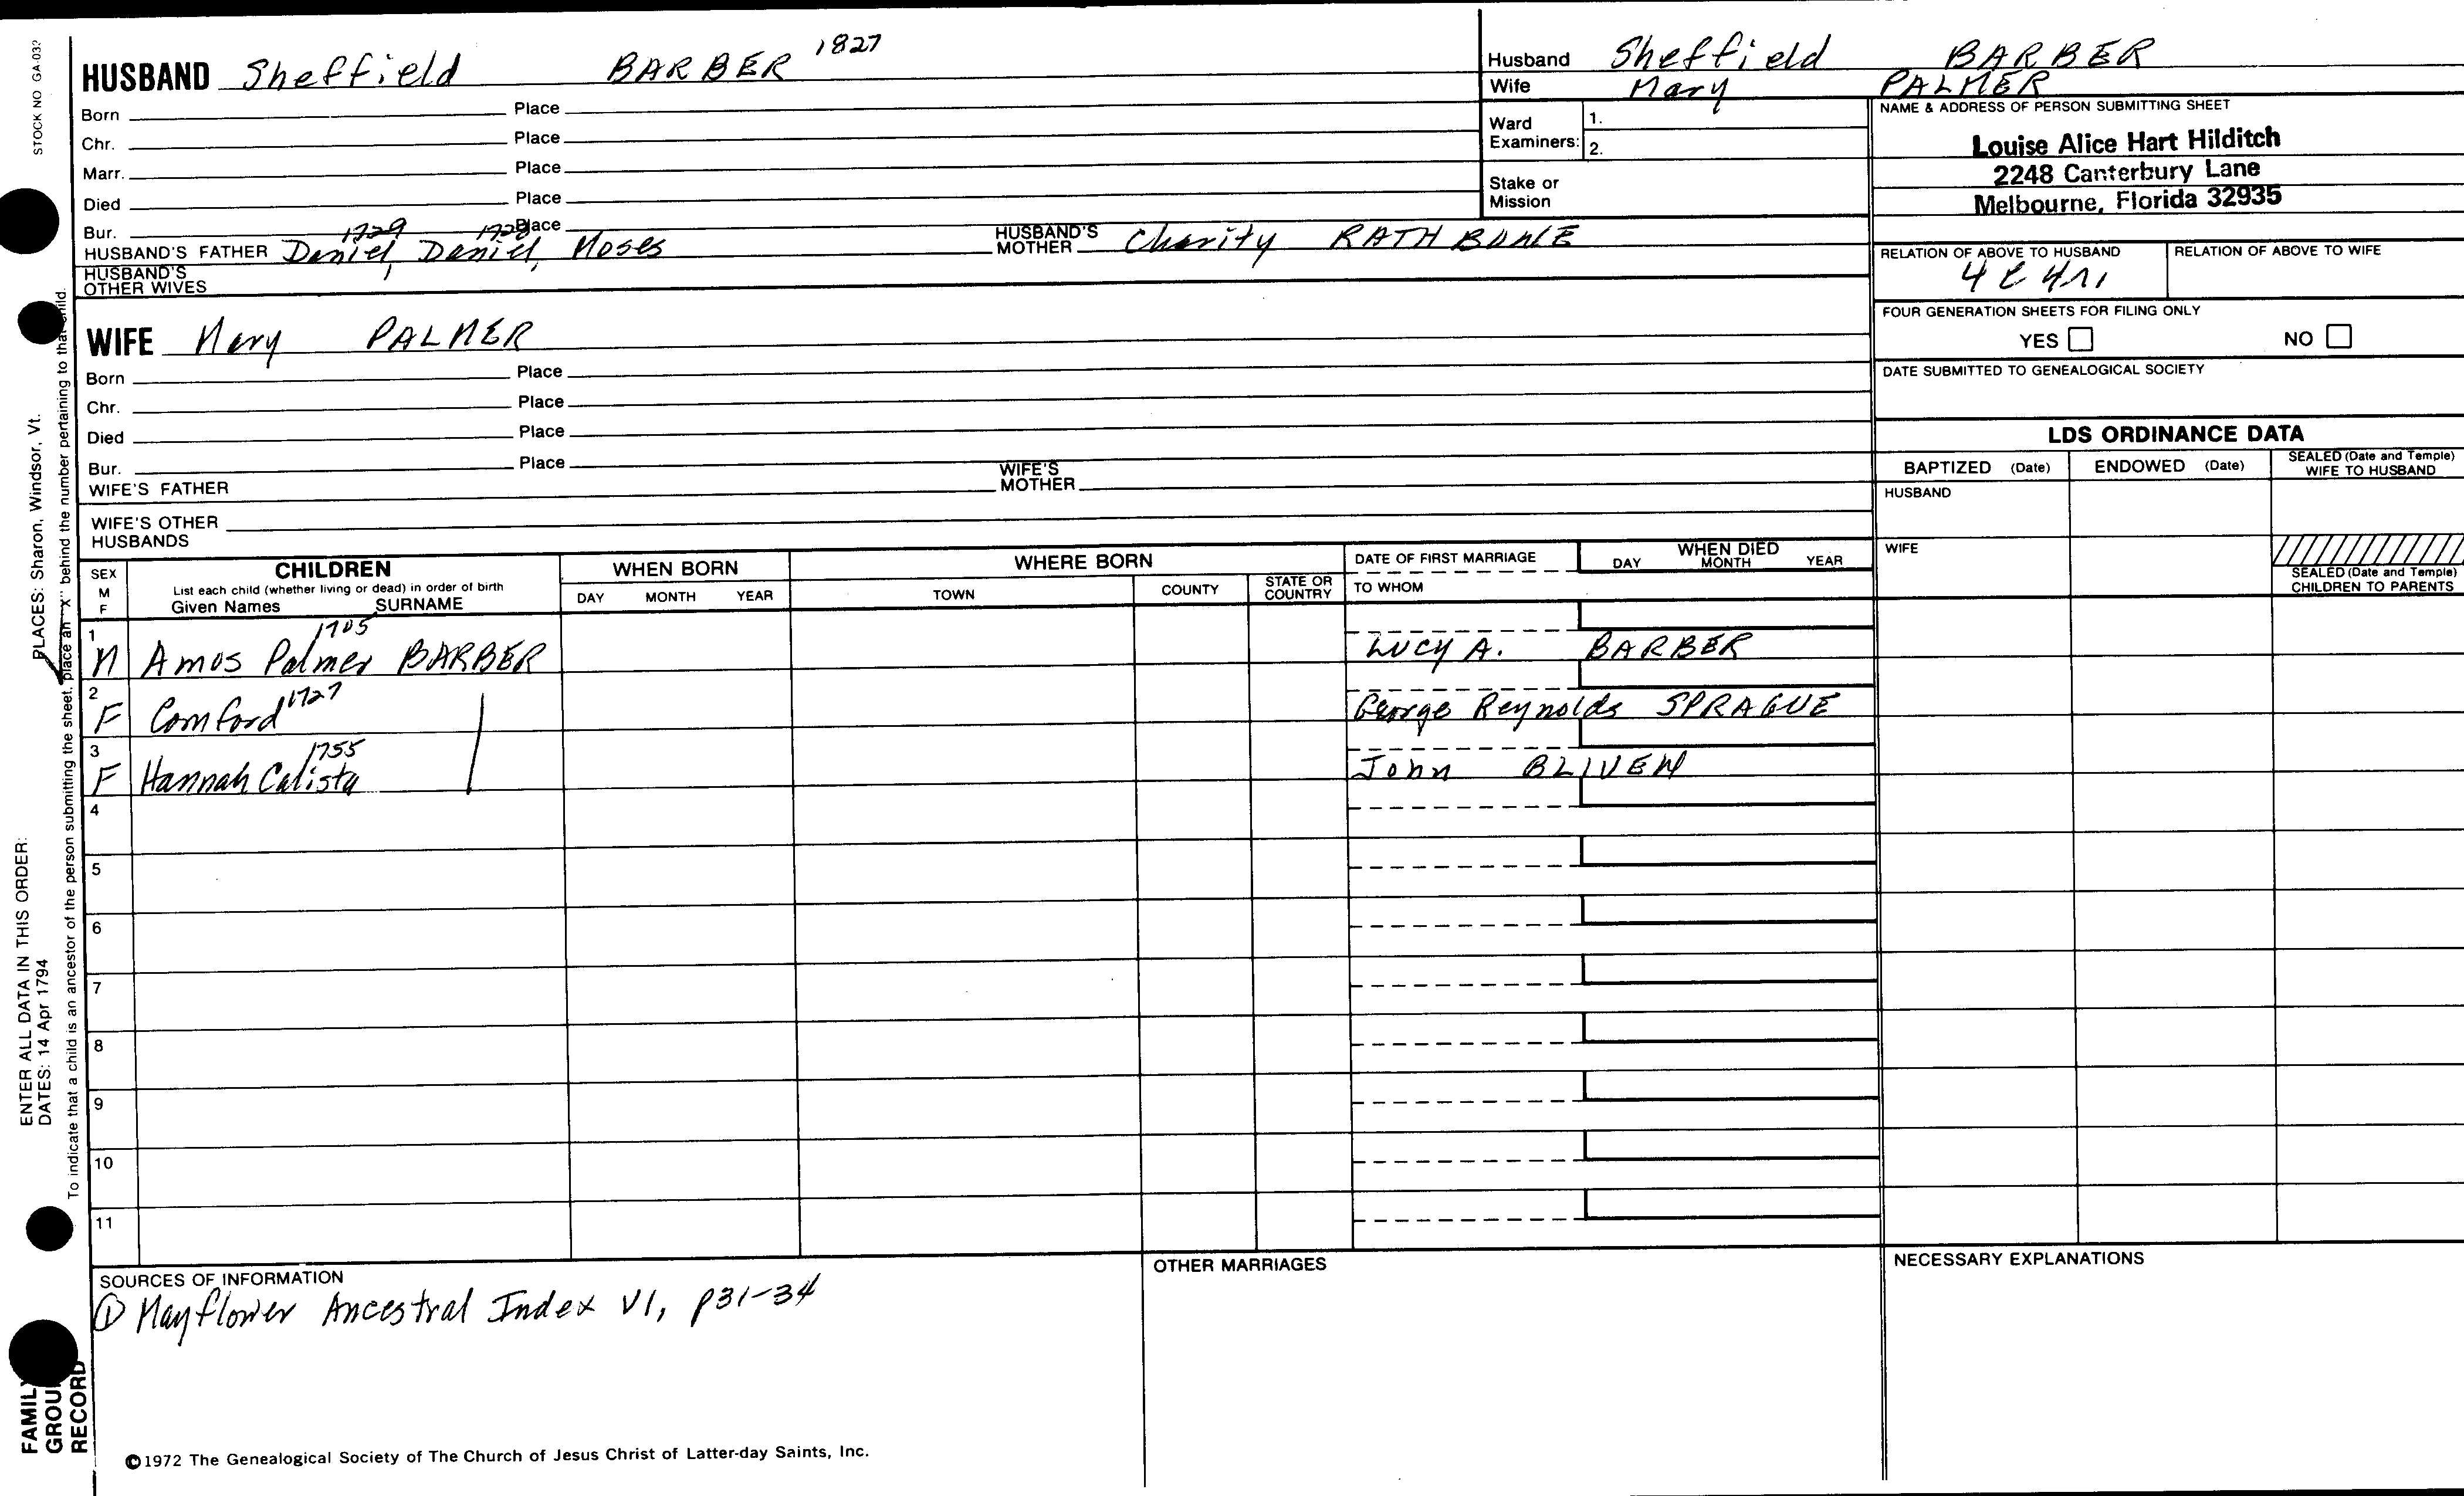 STOCK NO GA-032
HUSBAND Sheffield BARBER 1827
Born Place
Chr. Place
Marr. Place
Died Place
Bur. Place
1729 1728
HUSBAND'S FATHER Daniel, Daniel, Moses HUSBAND'S MOTHER Charity RATHBONE
HUSBAND'S OTHER WIVES
WIFE Mary PALMER
Born Place
Chr. Place
Died Place
Bur. Place
WIFE'S FATHER WIFE'S MOTHER
WIFE'S OTHER HUSBANDS
Husband Sheffield BARBER
Wife Mary PALMER
Ward Examiners: 1.
2.
Stake or Mission
NAME & ADDRESS OF PERSON SUBMITTING SHEET
Louise Alice Hart Hilditch
2248 Canterbury Lane
Melbourne, Florida 32935
RELATION OF ABOVE TO HUSBAND RELATION OF ABOVE TO WIFE
FOUR GENERATION SHEETS FOR FILING ONLY
YES NO
DATE SUBMITTED TO GENEALOGICAL SOCIETY
LDS ORDINANCE DATA
BAPTIZED (Date) ENDOWED (Date) SEALED (Date and Temple) WIFE TO HUSBAND
HUSBAND
WIFE
SEALED (Date and Temple) CHILDREN TO PARENTS
SEX M F
CHILDREN
List each child (whether living or dead) in order of birth
Given Names SURNAME
WHEN BORN
DAY MONTH YEAR
WHERE BORN
TOWN COUNTY STATE OR COUNTRY
DATE OF FIRST MARRIAGE
TO WHOM
WHEN DIED
DAY MONTH YEAR
1 M Amos Palmer BARBER 1705 Lucy A. BARBER
2 F Comford 1727 George Reynolds SPRAGUE
3 F Hannah Calista 1755 John BLIVEN
4
5
6
7
8
9
10
11
SOURCES OF INFORMATION
① Mayflower Ancestral Index V1, p31-34
OTHER MARRIAGES
NECESSARY EXPLANATIONS
©1972 The Genealogical Society of The Church of Jesus Christ of Latter-day Saints, Inc.
ENTER ALL DATA IN THIS ORDER:
DATES: 14 Apr 1794
PLACES: Sharon, Windsor, Vt.
To indicate that a child is an ancestor of the person submitting the sheet, place an "X" behind the number pertaining to that child.
FAMILY
GROUP
RECORD